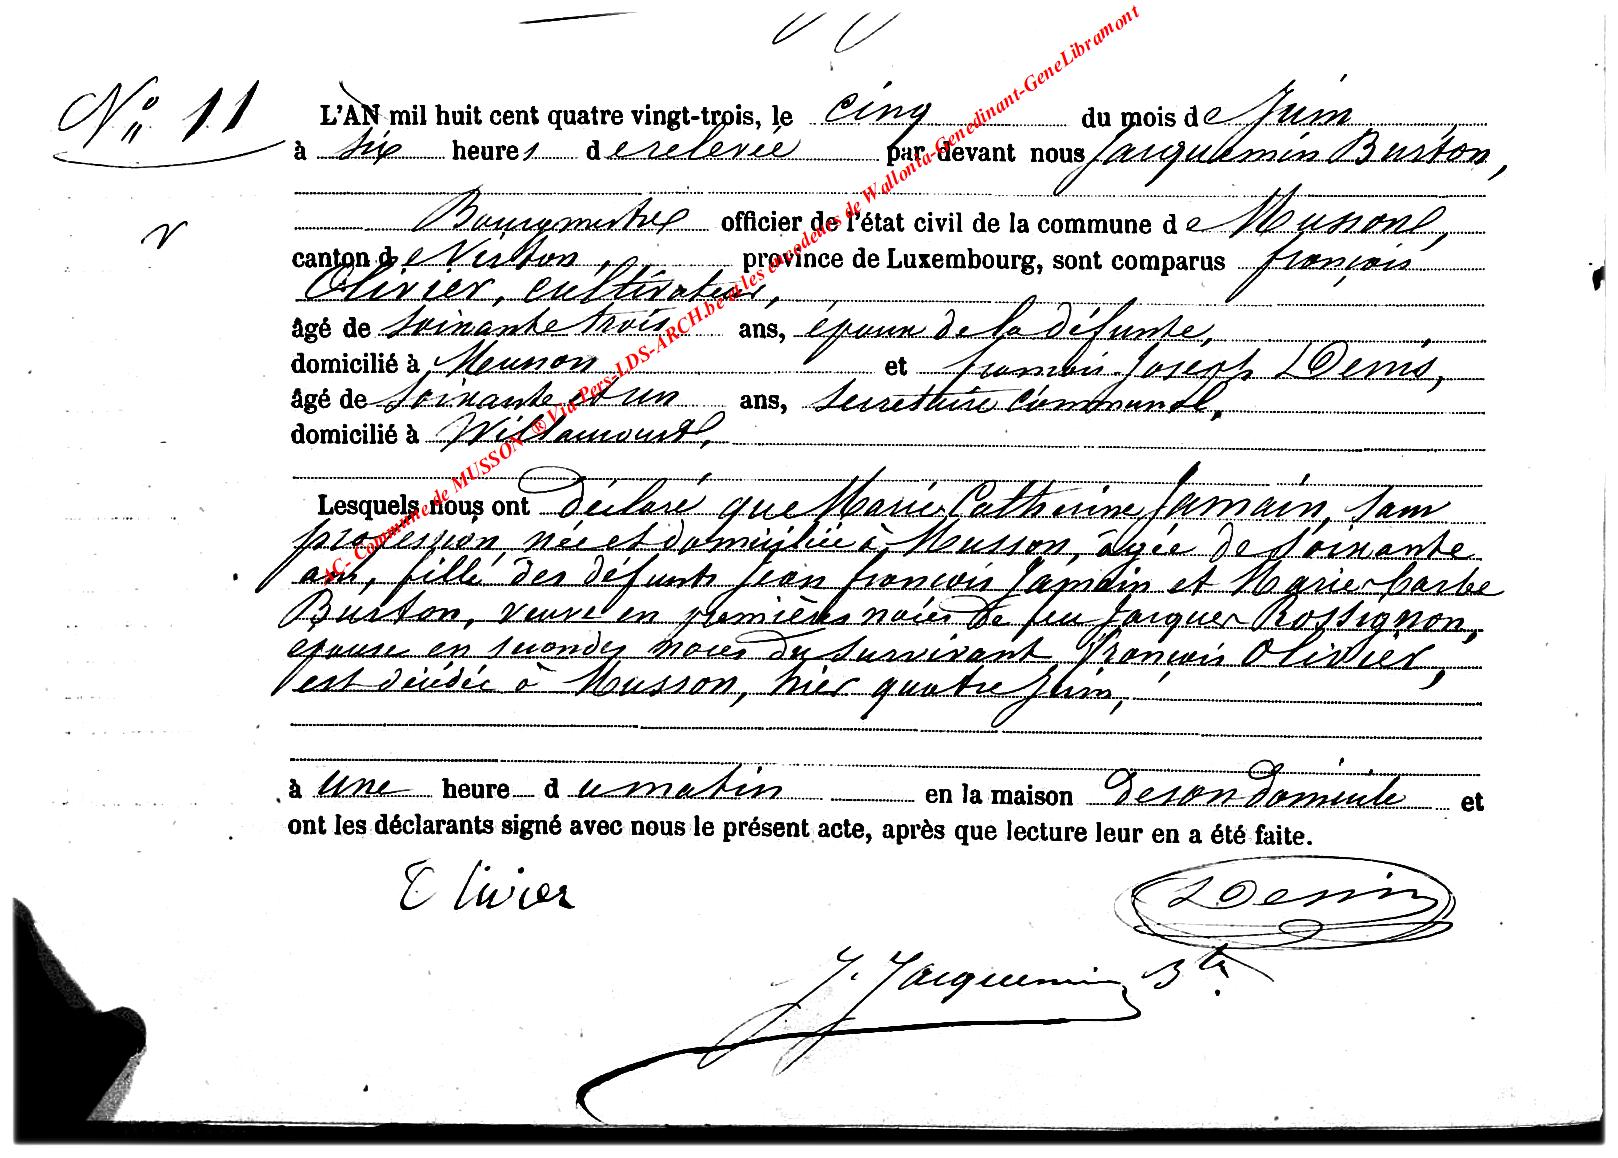 N° 11
L'AN mil huit cent quatre vingt-trois, le cinq du mois de Juin
à six heures de relevée par devant nous Jacquemin Burton,
Bourgmestre officier de l'état civil de la commune de Musson,
canton de Virton, province de Luxembourg, sont comparus françois
Olivier, cultivateur,
âgé de soixante trois ans, époux de la défunte,
domicilié à Musson et françois Joseph Denis,
âgé de soixante et un ans, secrétaire communal,
domicilié à Willancourt,
Lesquels nous ont déclaré que Marie Catherine Jamain, sans
profession, née et domiciliée à Musson, âgée de soixante
ans, fille des défunts Jean françois Jamain et Marie barbe
Burton, veuve en premières noces de feu Jacques Rossignon,
épouse en secondes noces du survivant françois Olivier,
est décédée à Musson, hier quatre Juin,
à une heure du matin en la maison de son domicile et
ont les déclarants signé avec nous le présent acte, après que lecture leur en a été faite.
Olivier
Denis
J. Jacquemin Btn
AC- Commune de MUSSON ® Via Pers-LDS-ARCH.be et les encodeurs de Wallonia-Genedinant-GeneLibramont